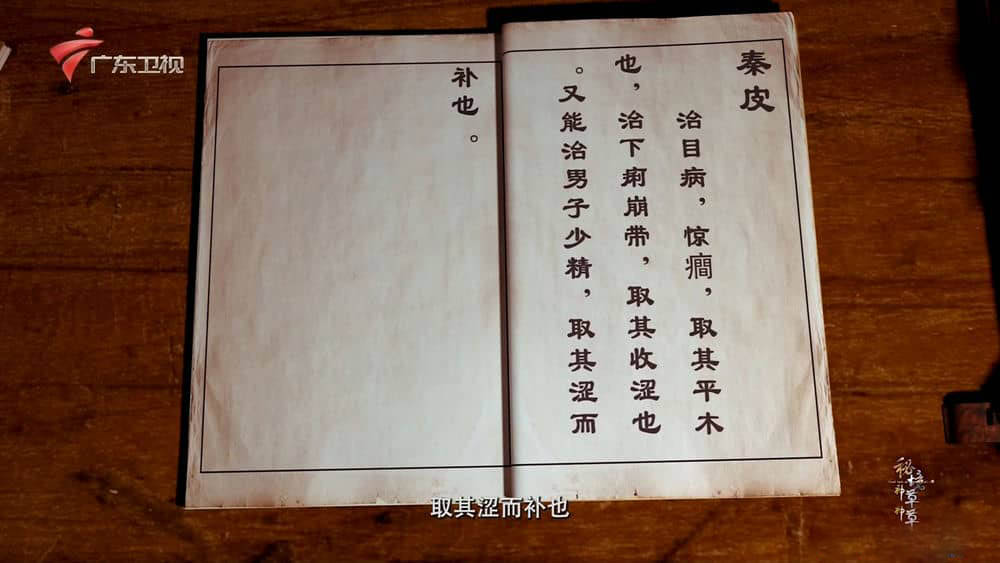 广东卫视
秦皮
治目病，惊癎，取其平木
也，治下痢崩带，取其收涩也
。又能治男子少精，取其涩而
补也。
取其涩而补也